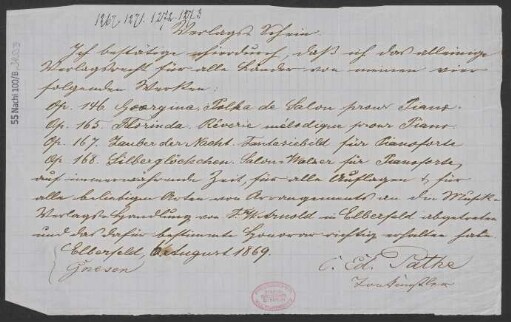 1267. 1271. 1272. 1273
Verlags Schein
Ich bestätige hierdurch, daß ich das alleinige
Verlagsrecht für alle Länder von meinen vier
folgenden Werken:
Op. 146. Georgina, Polka de Salon pour Piano.
Op. 165. Florinda. Rêverie mélodique pour Piano.
Op. 167. Zauber der Nacht. Fantasiebild für Pianoforte
Op. 168. Silberglöckchen. Salon-Walzer für Pianoforte,
auf immerwährende Zeit, für alle Auflagen & für
alle beliebigen Arten von Arrangements an die Musik-
Verlags-Handlung von F. W. Arnold in Elberfeld abgetreten
und das dafür bestimmte Honorar richtig erhalten habe.
Elberfeld, August 1869.
C. Ed. Pathe
Tonkünstler
55 Nachl 100/B